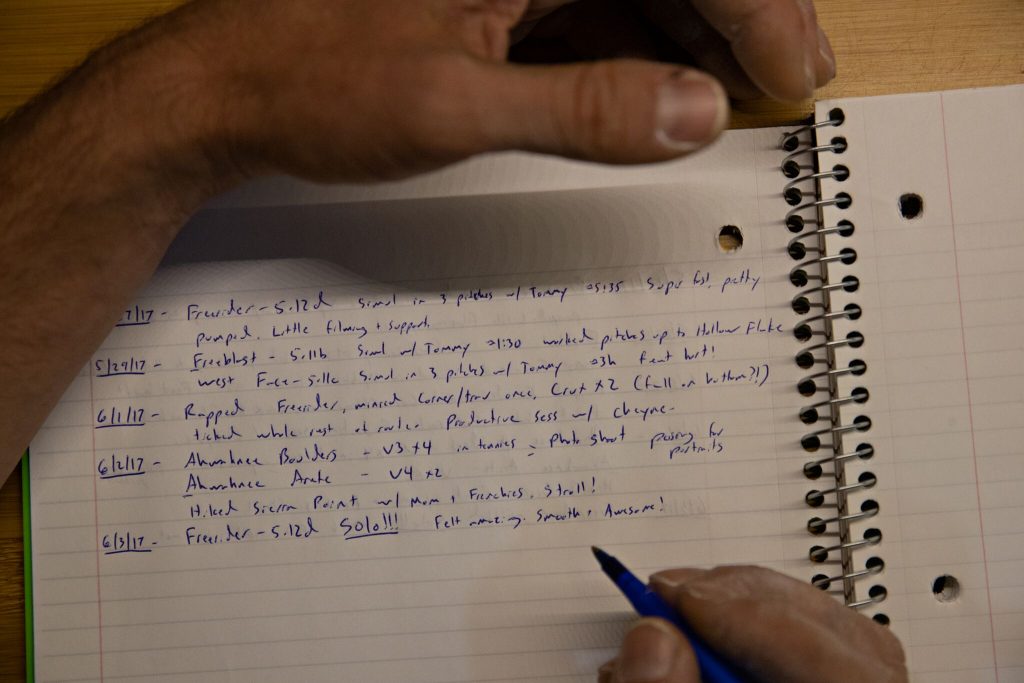 7/17 - Freerider - 5.12d Simul in 3 pitches w/ Tommy ≈5:35 Super fast, pretty
pumped. Little filming + support.
5/29/17 - Freeblast - 5.11b Simul w/ Tommy ≈1:30 worked pitches up to Hollow Flake
West Face - 5.11c Simul in 3 pitches w/ Tommy ≈3h feet hurt!
6/1/17 - Rapped Freerider, miniced corner/trav once, Crux x2 (fall on bottom?!)
ticked whole rest of route. Productive sess w/ Cheyne.
6/2/17 - Ahwahnee Boulders - V3 x4 in tennies - Photo Shoot posing for
portraits
Ahwahnee Arete - V4 x2
Hiked Sierra Point w/ Mom + Frenchies. Stroll!
6/3/17 - Freerider - 5.12d Solo!!! Felt amazing. Smooth + Awesome!